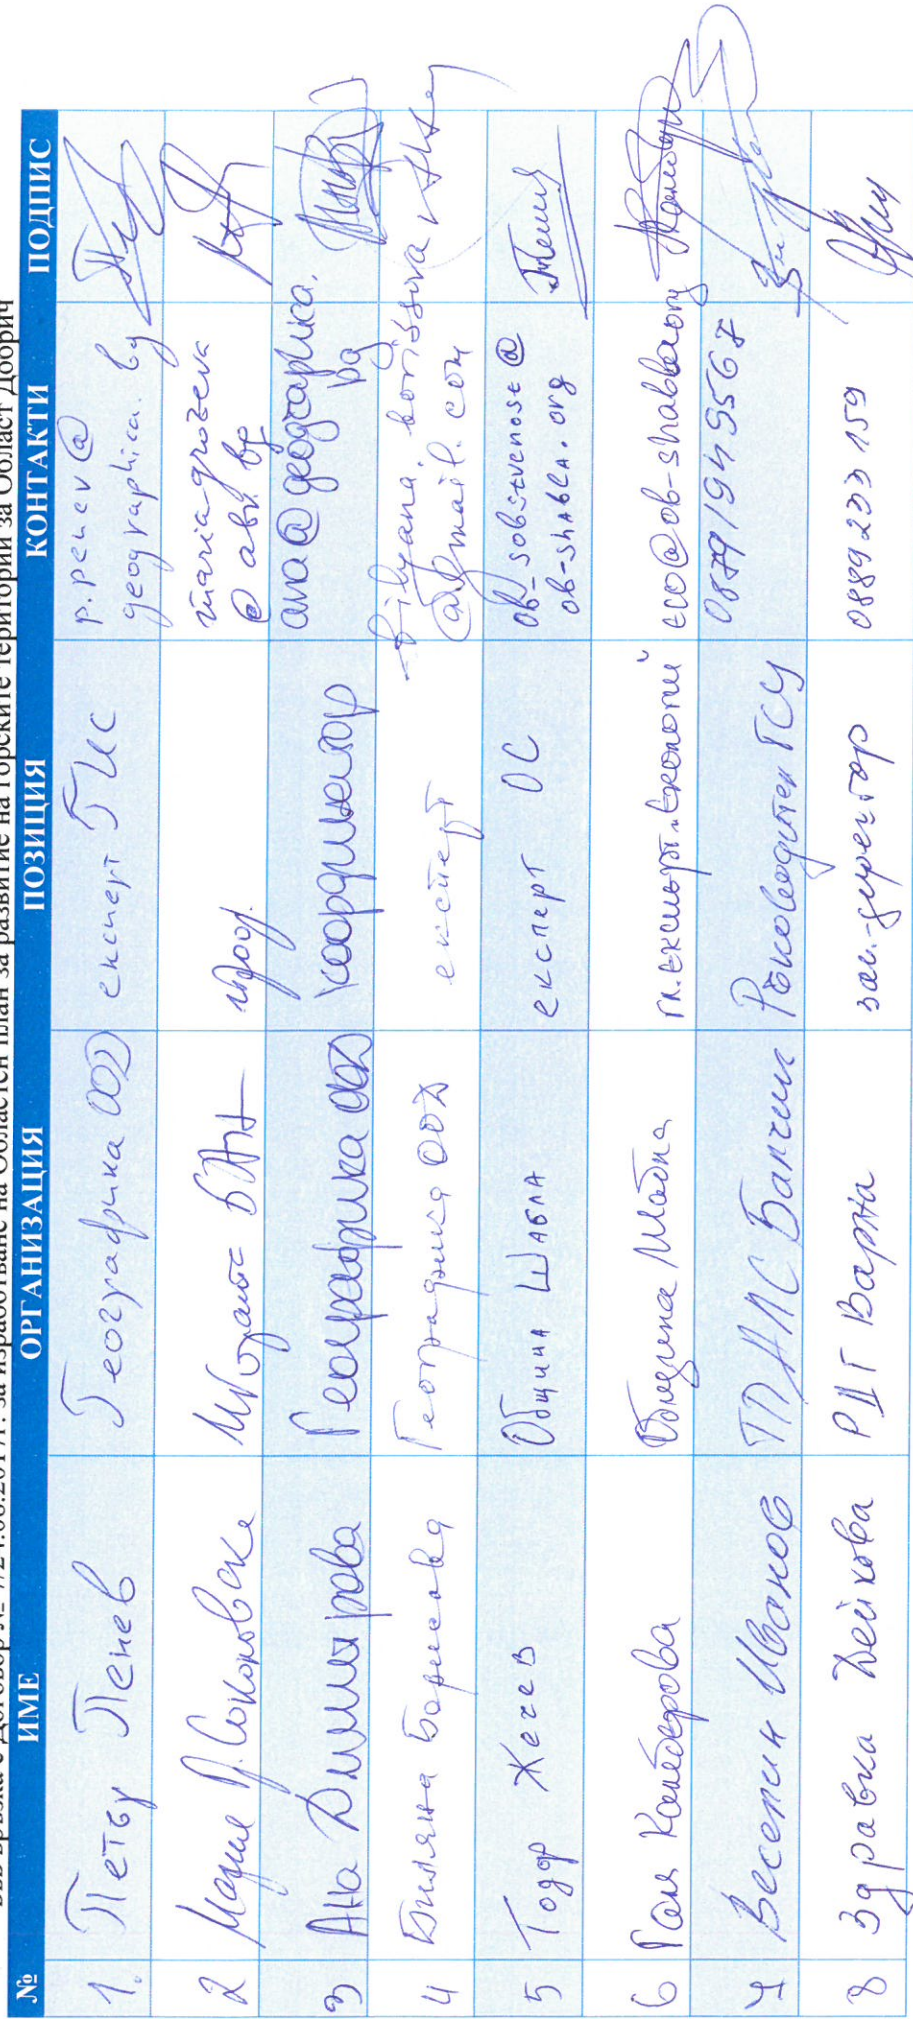 във връзка с Договор № 7/24.08.2017г. за изработване на Областен план за развитие на горските територии за Област Добрич
№ ИМЕ ОРГАНИЗАЦИЯ ПОЗИЦИЯ КОНТАКТИ ПОДПИС
1. Петър Пенев Географика ООД експерт ГИС p.penev@
geographica.bg
2 Мария Соколовска БАН проф. maria-grozeva
@abv.bg
3 Ана Димитрова Географика ООД координатор ana@geographica.
bg
4 Биляна Борисова Географика ООД експерт bilyana.borissova
@gmail.com
5 Тодор Жечев Община ШАБЛА експерт ОС ob_sobstvenost@
ob-shabla.org
6 Галя Община Шабла гл. експерт Екология eco@ob-shabla.org
7 Веселин Иванов ТП ДЛС Балчик Ръководител ГСУ 0879/949567
8 Здравка Дейкова РДГ Варна зам.-директор 0889 233 159